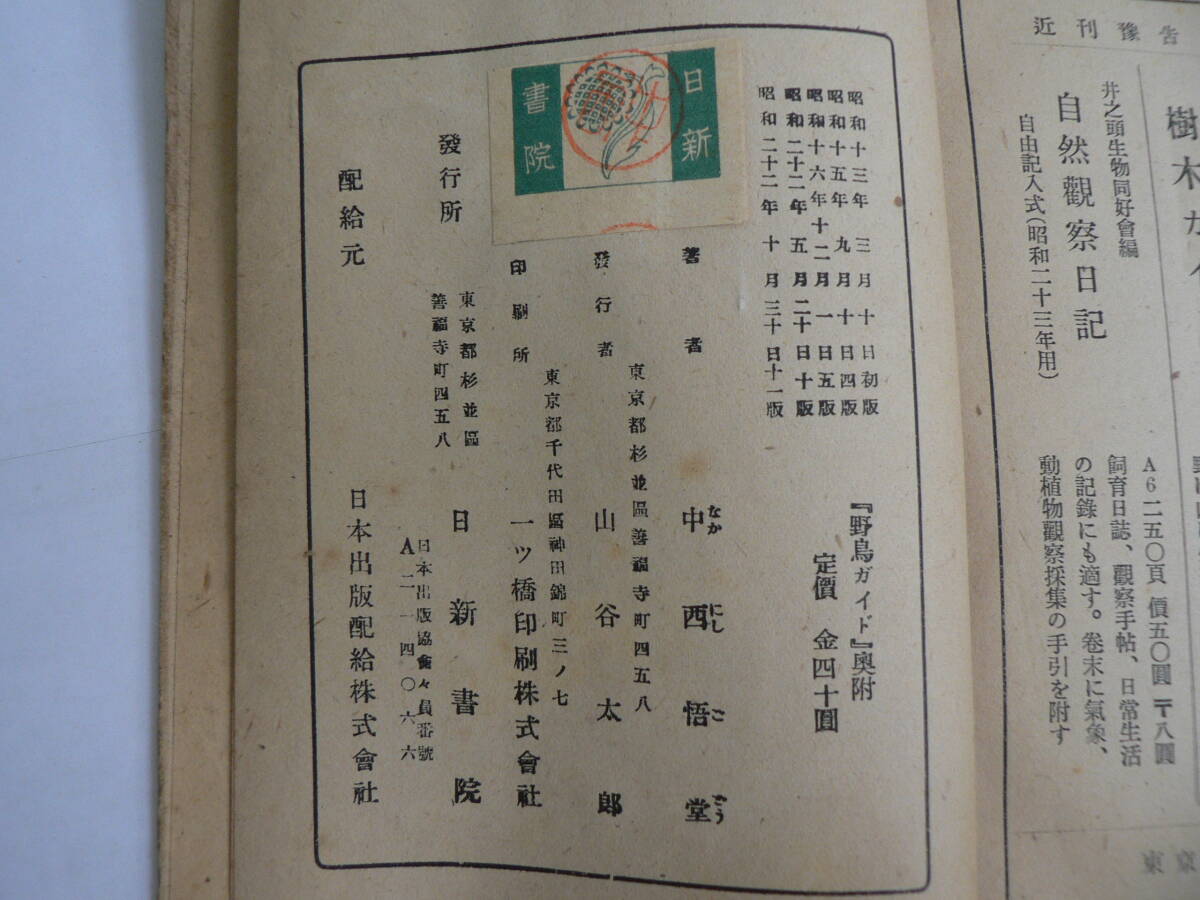 近刊豫告
井之頭生物同好會編
自然觀察日記
自由記入式(昭和二十三年用)
A6二五〇頁 價五〇圓 〒八圓
飼育日誌、觀察手帖、日常生活
の記錄にも適す。卷末に氣象、
動植物觀察採集の手引を附す
昭和十三年三月十日初版
昭和十五年九月十日四版
昭和十六年十二月一日五版
昭和二十二年五月二十日十版
昭和二十二年十月三十日十一版
『野鳥ガイド』奧附
定價 金四十圓
日新
書院
著者 中西悟堂
なか にし ご どう
東京都杉並區善福寺町四五八
發行者 山谷太郎
東京都千代田區神田錦町三ノ七
印刷所 一ツ橋印刷株式會社
東京都杉並區
善福寺町四五八
發行所 日新書院
日本出版協會々員番號
A二一四〇六六
配給元 日本出版配給株式會社